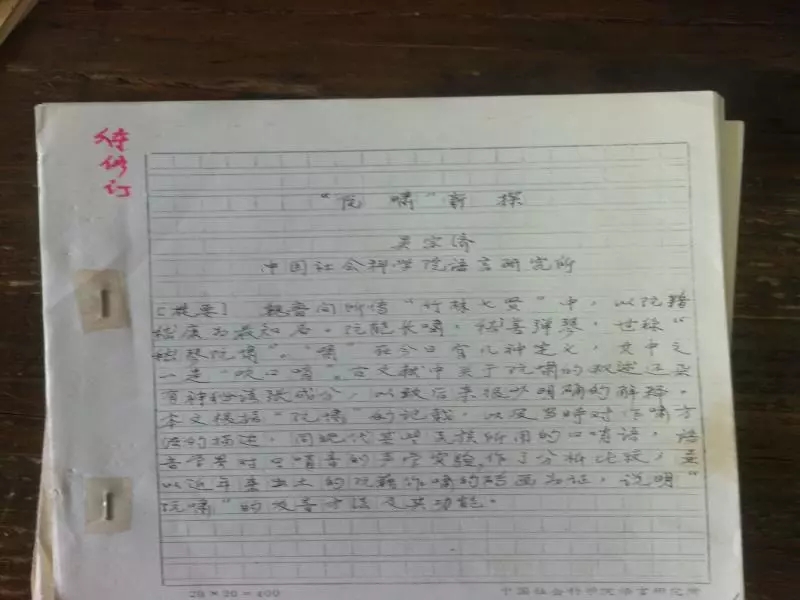 待修订
“阮 啸”新 探
吴宗济
中国社会科学院语言研究所
[提要] 魏晋间所传“竹林七贤”中，以阮籍
嵇康为最知名。阮能长啸，嵇善弹琴，世称“
嵇琴阮啸”。“啸”在今日有几种定义，其中之
一是“吹口哨”。古文献中关于阮啸的叙述还具
有神秘夸张成分，以致后来很少明确的解释。
本文根据“阮啸”的记载，以及当时对作啸方
法的描述，同现代某些民族所用的口哨语，语
音学界对口哨音的声学实验，作了分析比较，并
以近年来出土的阮籍作啸的砖画为证，说明“
阮啸”的发音方法及其功能。
20×20=400
中国社会科学院语言研究所